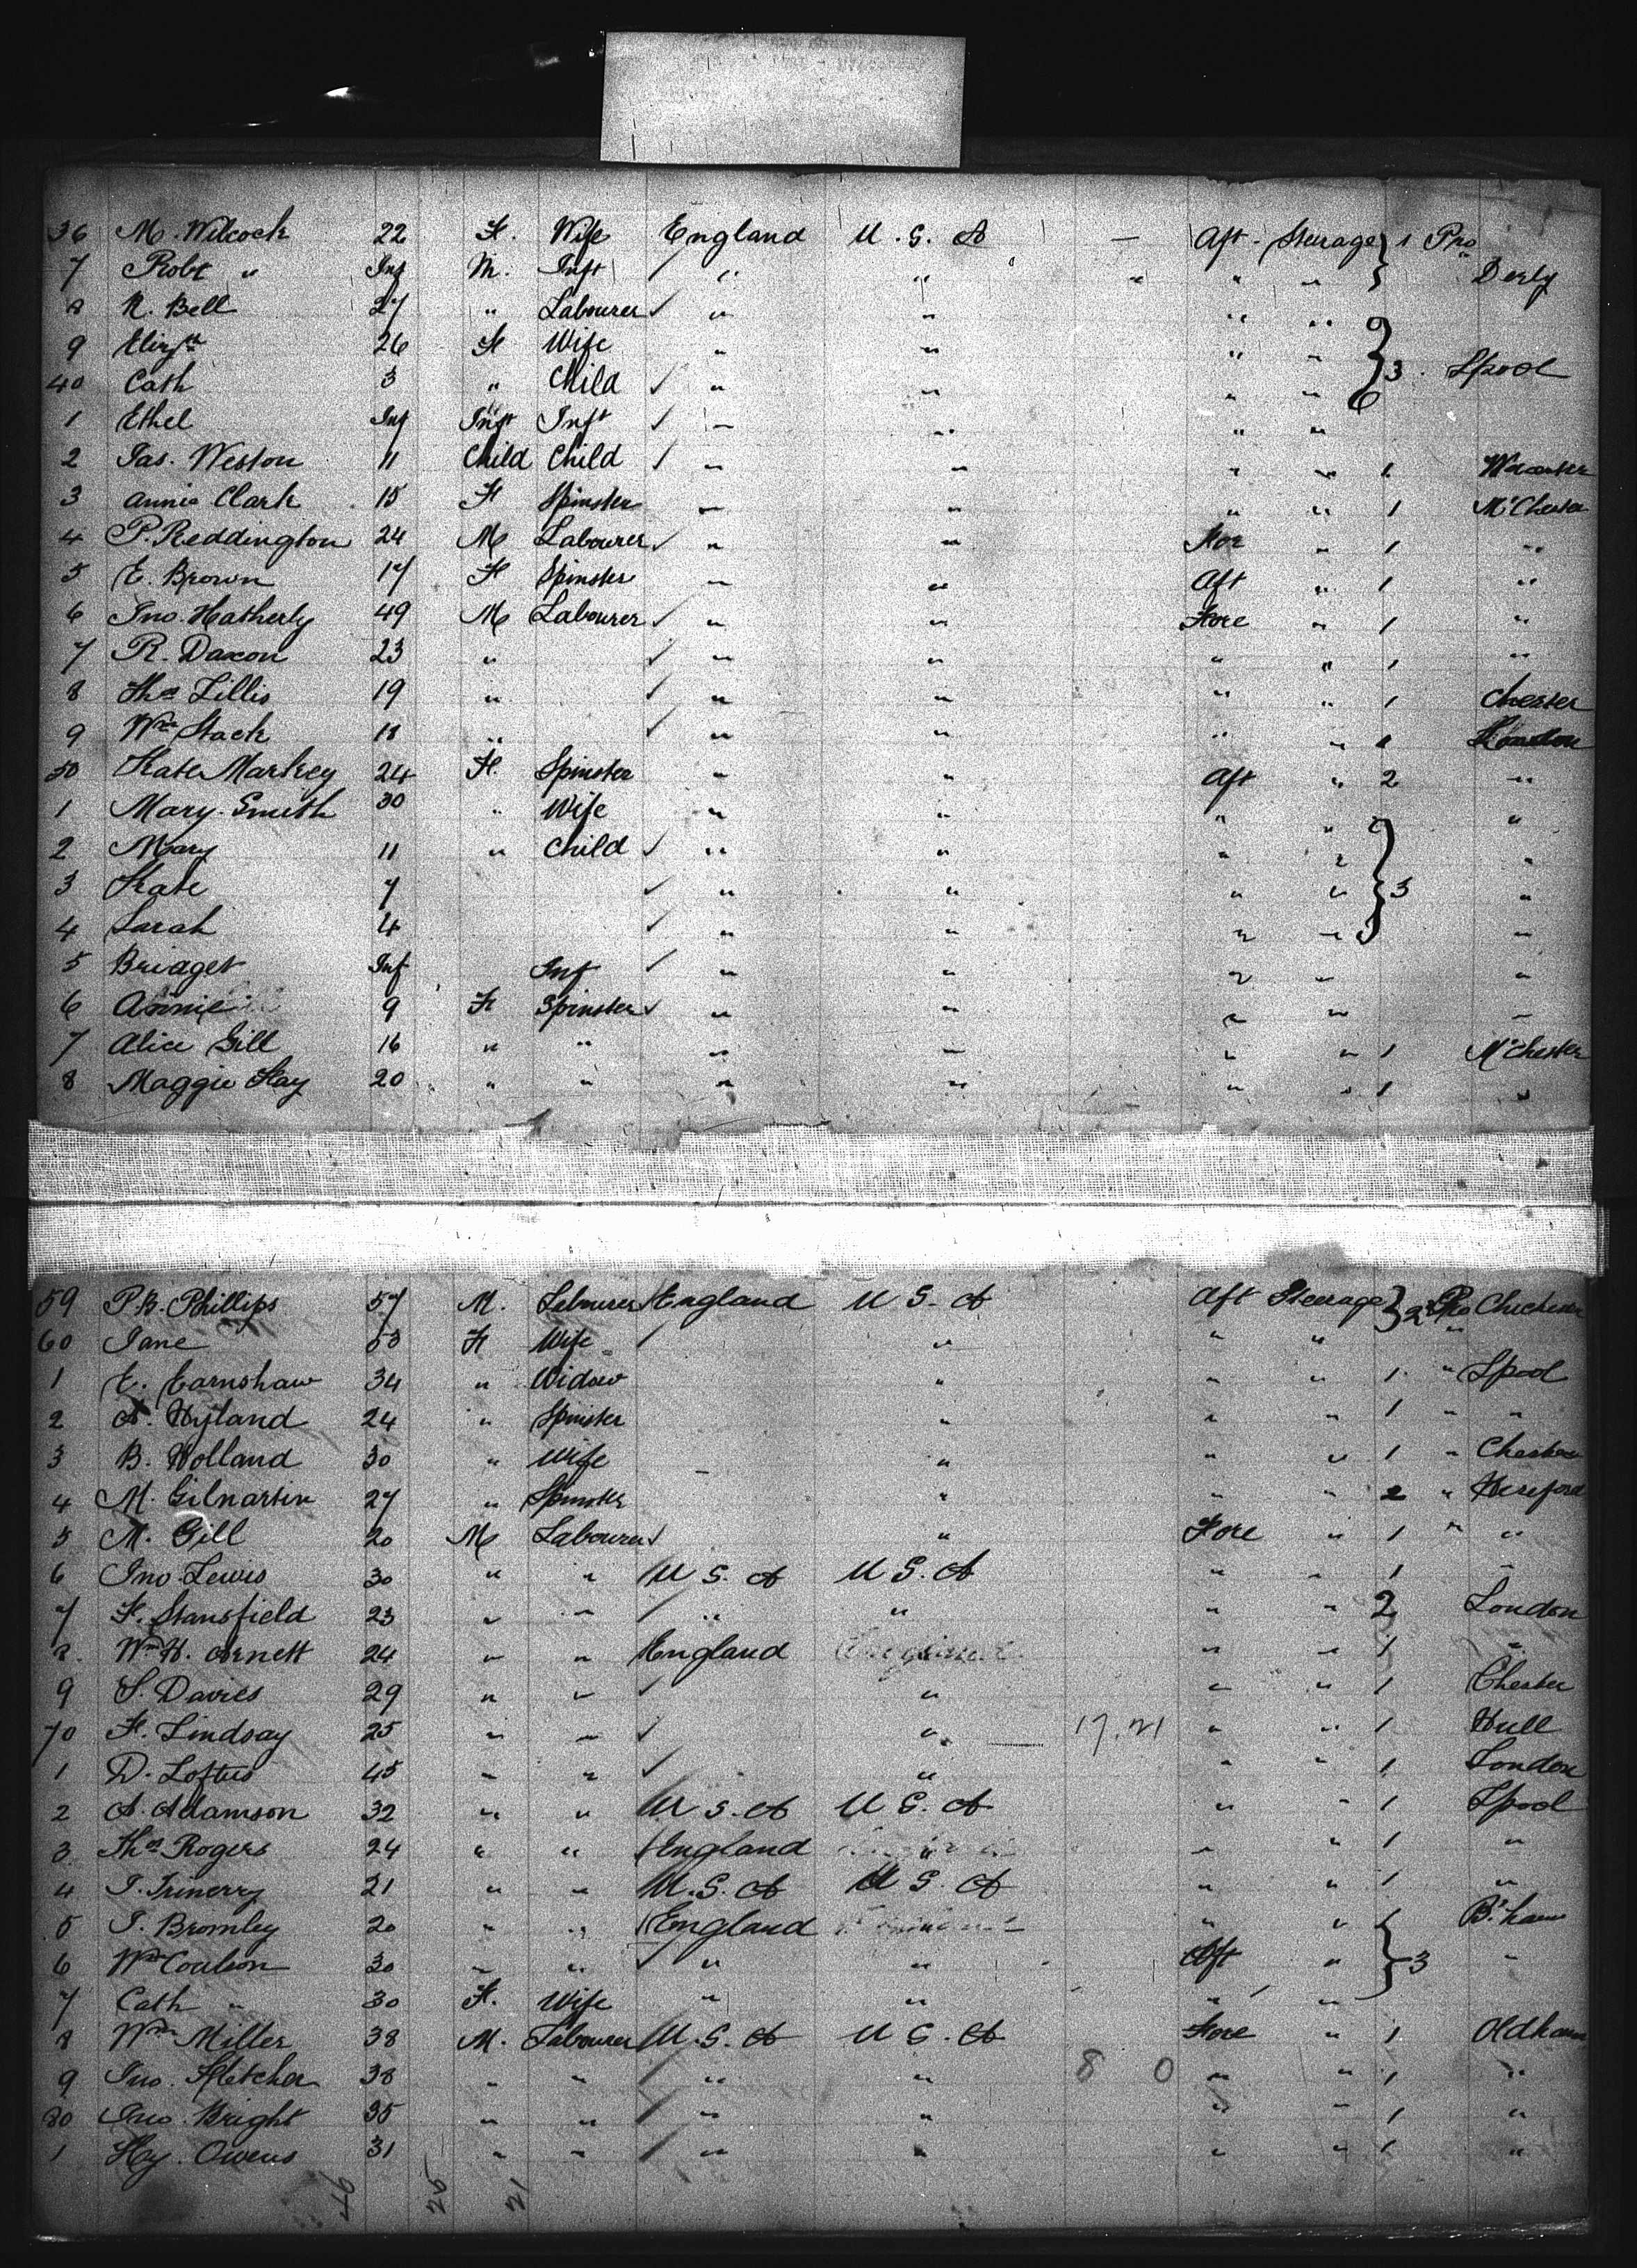 36 M. Wilcock 22 F. Wife England U.S. A — Aft. Steerage } 1 Pro
7 Robt " Inf M. Inft " " " " " " Derby
8 R. Bell 27 " Labourer ✓ " " " "
9 Elizth 26 F Wife " " " "
40 Cath 3 " Child ✓ " " " " } 3. Lpool
1 Ethel Inf Inft Inft ✓ " " " "
2 Jas. Weston 11 Child Child ✓ " " " " 1 Worcester
3 Annie Clark 15 F Spinster " " " " 1 M'Chester
4 P. Reddington 24 M Labourer ✓ " " For " 1 "
5 E. Brown 17 F Spinster " " Aft " 1 "
6 Jno. Hatherly 49 M Labourer ✓ " " Fore " 1 "
7 R. Daxon 23 " ✓ " " " " 1 "
8 Thos Lillis 19 " ✓ " " " " 1 Chester
9 Wm Stack 18 " ✓ " " " " 1 London
50 Kate Markey 24 F. Spinster " " Aft " 2 "
1 Mary Smith 30 " Wife " " " " "
2 Mary 11 " Child ✓ " " " " "
3 Kate 7 ✓ " " " " } 3 "
4 Sarah 4 ✓ " " " " "
5 Bridget Inf Inf ✓ " " " " "
6 Annie 9 F Spinster ✓ " " " " "
7 Alice Gill 16 " " " " " " 1 M'Chester
8 Maggie Kay 20 " " " " " " 1 "
59 P.B. Phillips 57 M. Labourer England U S. A Aft Steerage } 2 Pro
60 Jane 53 F Wife ✓ " " " "
1 E. Earnshaw 34 " Widow " " " 1 " Lpool
2 A. Hyland 24 " Spinster " " " 1 " "
3 B. Holland 30 " Wife " " " 1 " Chester
4 M. Gilmartin 27 " Spinster " " " 2 " Hereford
5 M. Gill 20 M Labourer ✓ " Fore " 1 " "
6 Jno. Lewis 30 " " U S. A U S. A " " 1 "
7 F. Stansfield 23 " " " " " " 2 London
8. Wm H. Arnett 24 " " England " " 1 "
9 S. Davies 29 " " ✓ " " " 1 Chester
70 F. Lindsay 25 " " ✓ " 17.21 " " 1 Hull
1 D. Loftus 45 " " ✓ " " " 1 London
2 A. Adamson 32 " " U S. A U S. A " " 1 Lpool
3. Thos Rogers 24 " " England " " " 1 "
4 21 " " U.S. A U S. A " " 1 "
5 J. Bromley 20 " " England " " 1 B'ham
6 Wm Coulson 30 " " ✓ " " Aft " } 3 "
7 Cath " 30 F. Wife " " " "
8 Wm Miller 38 M. Labourer U.S. A U S. A Fore " 1 Oldham
9 Jno. Fletcher 38 " " " " 8 0 " " 1 "
80 Jno. Bright 35 " " " " " " 1 "
1 Hy. Owens 31 " " " " " " 1 "
26 21